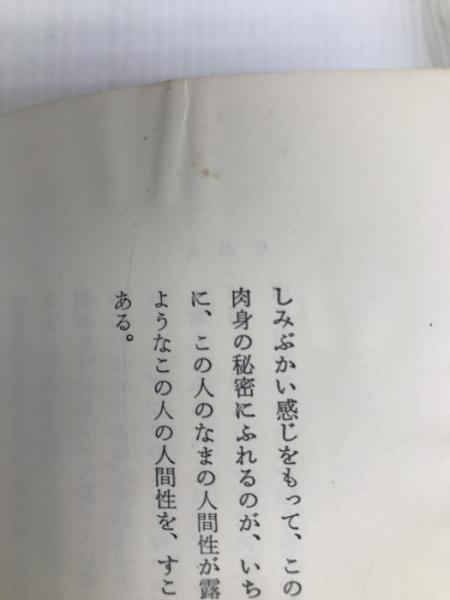 しみぶかい感じをもって、この
肉身の秘密にふれるのが、いち
に、この人のなまの人間性が露
ようなこの人の人間性を、すこ
ある。